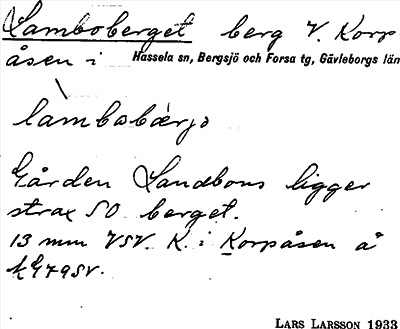 Lamboberget berg V. Korp
åsen i Hassela sn, Bergsjö och Forsa tg, Gävleborgs län
làmbobærjə
Gården Sandbons ligger
strax SO berget.
13 mm VSV. K. i Korpåsen å
k G79SV.
LARS LARSSON 1933